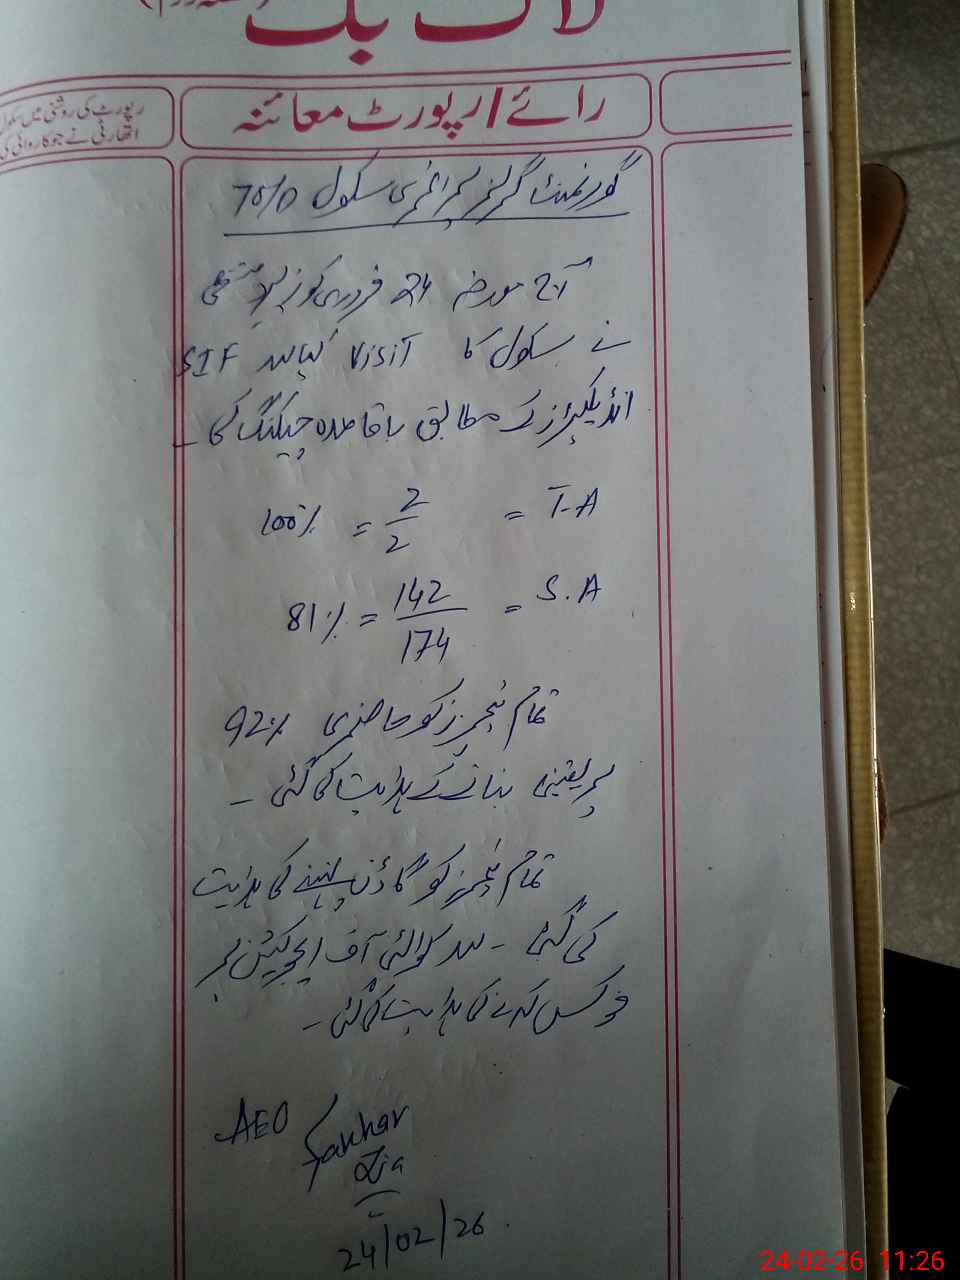 لاگ بک
رائے/رپورٹ معائنہ
رپورٹ کی روشنی میں سکول
اتھارٹی نے جو کاروائی کی
گورنمنٹ گرلز پرائمری سکول 75/D
آج مورخہ 24 فروری کو زیر دستخطی
نے سکول کا Visit کیا اور SIF
انڈیکیٹرز کے مطابق باقاعدہ چیکنگ کی -
T.A = 2/2 = 100%
S.A = 142/174 = 81%
تمام ٹیچرز کو حاضری 92%
پر یقینی بنانے کی ہدایت کی گئی -
تمام ٹیچرز کو گاؤن پہننے کی ہدایت
کی گئی - اور کوالٹی آف ایجوکیشن پر
فوکس کرنے کی ہدایت کی گئی -
AEO
Zia
24/02/26
24-02-26 11:26